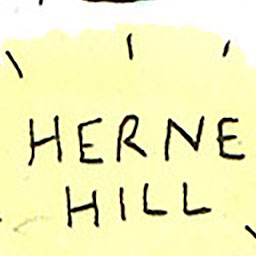 HERNE
HILL